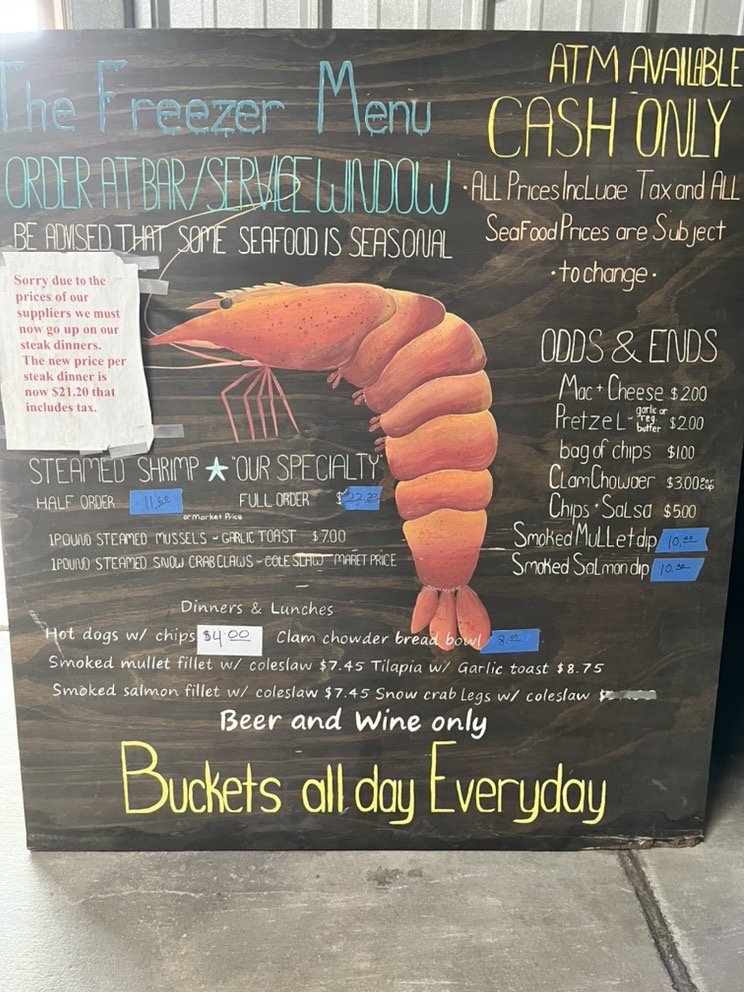 The Freezer Menu
ORDER AT BAR/SERVICE WINDOW
BE ADVISED THAT SOME SEAFOOD IS SEASONAL
ATM AVAILABLE
CASH ONLY
·ALL Prices Include Tax and ALL
SeaFood Prices are Subject
·to change·
Sorry due to the
prices of our
suppliers we must
now go up on our
steak dinners.
The new price per
steak dinner is
now $21.20 that
includes tax.
ODDS & ENDS
Mac + Cheese $2.00
Pretzel - garlic or reg. butter $2.00
bag of chips $1.00
Clam Chowder $3.00 cup
Chips + Salsa $5.00
Smoked Mullet dip 10.00
Smoked Salmon dip 10.50
STEAMED SHRIMP ★ "OUR SPECIALTY"
HALF ORDER 11.50 FULL ORDER $
or Market Price
1 POUND STEAMED MUSSELS - GARLIC TOAST $7.00
1 POUND STEAMED SNOW CRAB CLAWS - COLESLAW MARET PRICE
Dinners & Lunches
Hot dogs w/ chips $4.00 Clam chowder bread bowl 8.00
Smoked mullet fillet w/ coleslaw $7.45 Tilapia w/ Garlic toast $8.75
Smoked salmon fillet w/ coleslaw $7.45 Snow crab Legs w/ coleslaw $
Beer and Wine only
Buckets all day Everyday